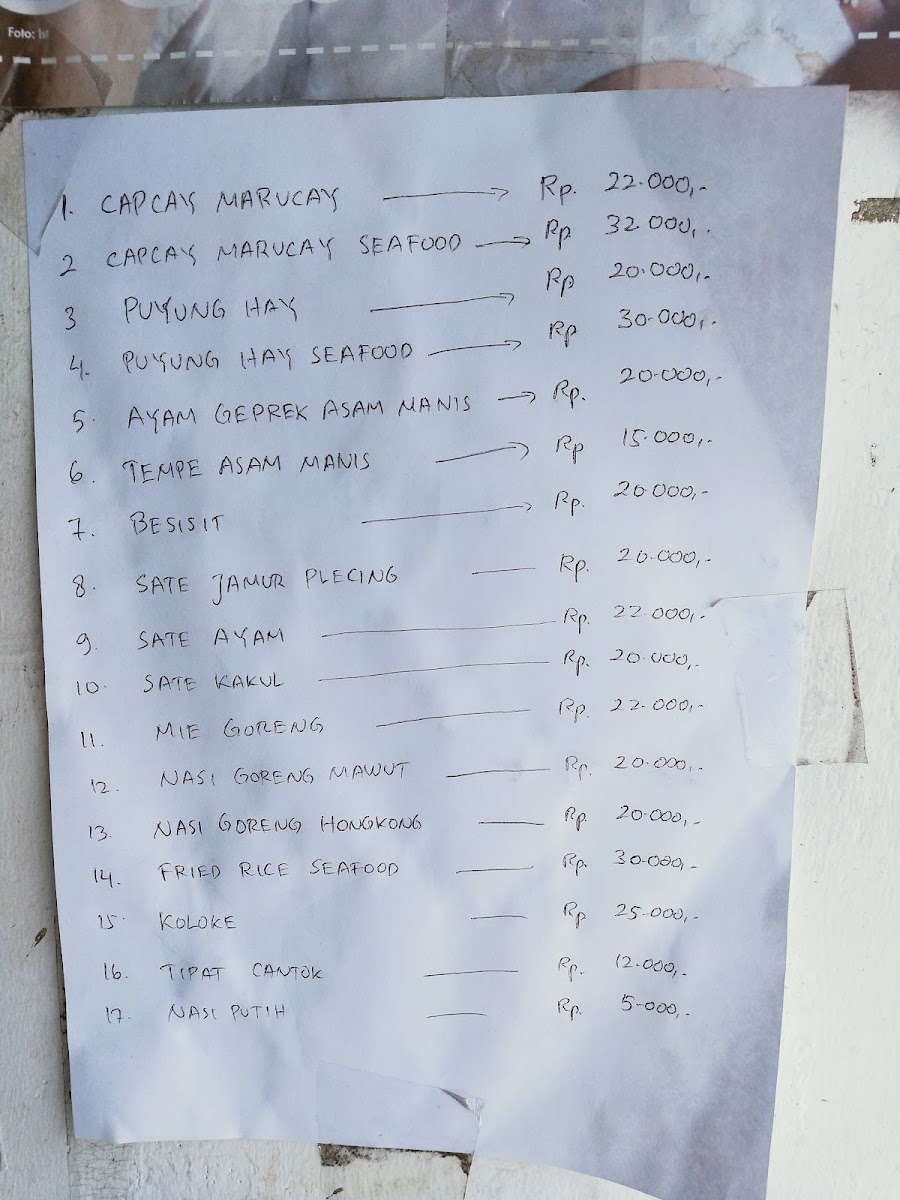 Foto: Ist
1. CAPCAY MARUCAY → Rp. 22.000,-
2 CAPCAY MARUCAY SEAFOOD → Rp 32.000,-
3 PUYUNG HAY → Rp 20.000,-
4. PUYUNG HAY SEAFOOD → Rp 30.000,-
5. AYAM GEPREK ASAM MANIS → Rp. 20.000,-
6. TEMPE ASAM MANIS → Rp 15.000,-
7. BESISIT → Rp. 20.000,-
8. SATE JAMUR PLECING — Rp. 20.000,-
9. SATE AYAM — Rp. 22.000,-
10. SATE KAKUL — Rp. 20.000,-
11. MIE GORENG — Rp. 22.000,-
12. NASI GORENG MAWUT — Rp. 20.000,-
13. NASI GORENG HONGKONG — Rp. 20.000,-
14. FRIED RICE SEAFOOD — Rp. 30.000,-
15. KOLOKE — Rp 25.000,-
16. TIPAT CANTOK — Rp. 12.000,-
17. NASI PUTIH — Rp. 5.000,-